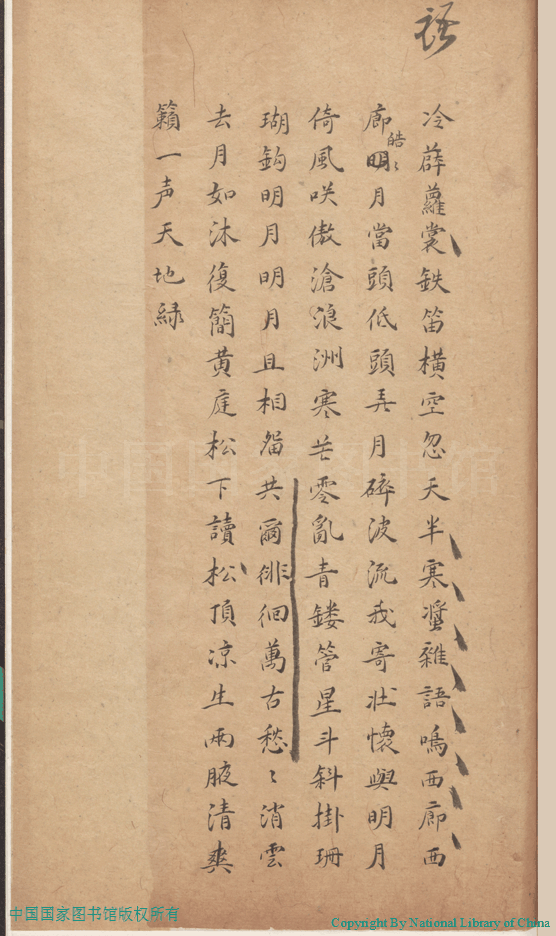 冷薜蘿裳鉄笛橫空忽天半寒螀雜語鳴西廊西
廊明皓〻月當頭低頭弄月碎波流我寄壯懷與明月
倚風咲傲滄浪洲寒芒零亂青鏤管星斗斜掛珊
瑚鈎明月明月且相畱共爾徘徊萬古愁〻消雲
去月如沐復簡黄庭松下讀松頂凉生兩腋清爽
籟一声天地緑
中国国家图书馆
中国国家图书馆版权所有
Copyright By National Library of China